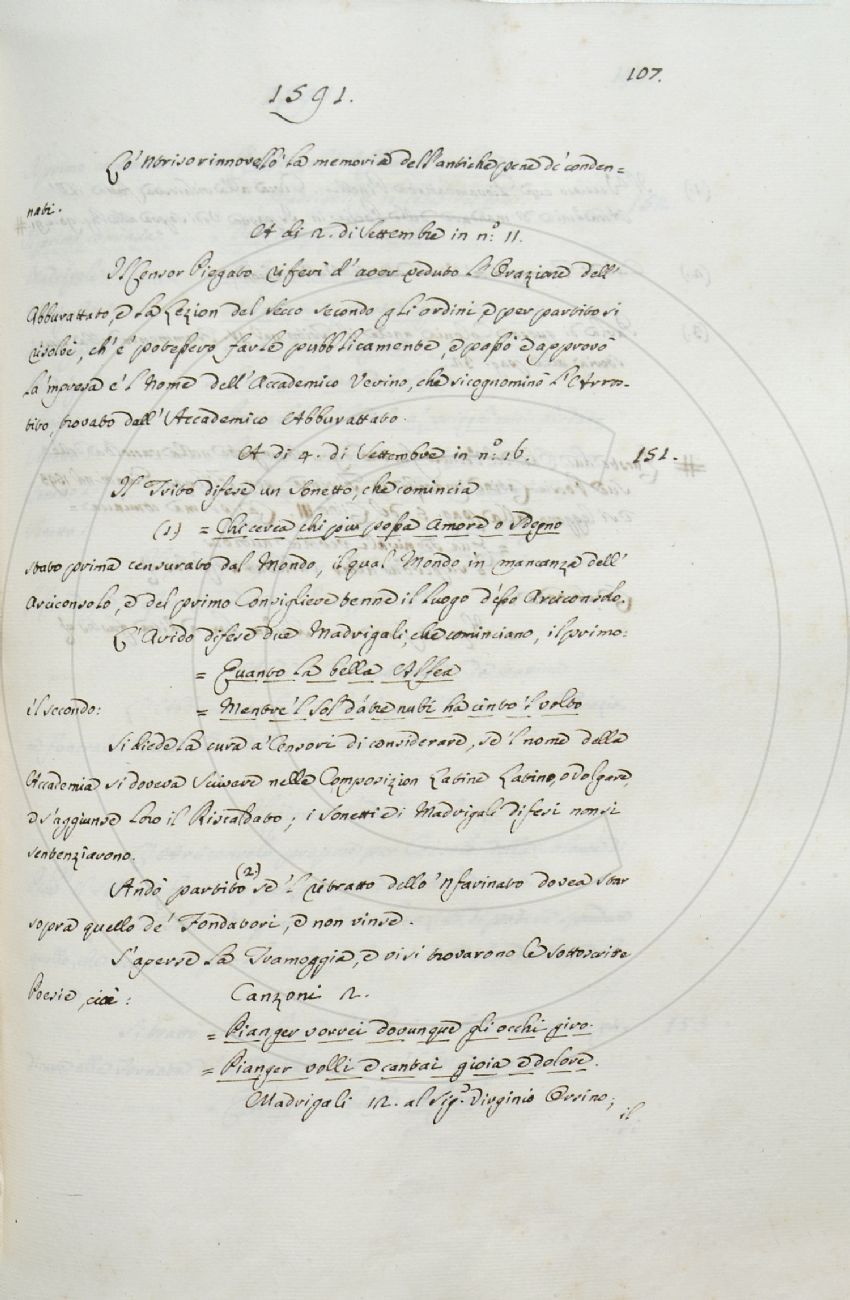 107.
1591.
Lo 'Ntriso rinnovellò la memoria dell'antiche pene de' conden=
nati.
A di 2. di Settembre in n.º 11.
Il Censor Piegato riferì d'aver veduto l'Orazione dell'
Abburattato, e la Lezion del Secco secondo gli ordini, e per partito si
risolvè, ch'e' potessero farle pubblicamente, e passò e approvò
la 'mpresa e 'l nome dell'Accademico Verino, che si cognominò l'Arros-
tito, trovato dall'Accademico Abburattato.
A di 4. di Settembre in n.º 16. 151.
Il Trito difese un Sonetto, che comincia
(1) = Chi cerca chi piu possa Amore o Sdegno
stato prima censurato dal Mondo, il qual Mondo in mancanza dell'
Arciconsolo, e del primo Consigliere tenne il luogo d'esso Arciconsolo.
L'Avido difese due Madrigali, che cominciano, il primo:
= Quanto la bella Alfea
il secondo: = Mentre 'l Sol d'atre nubi ha cinto 'l volto
Si diede la cura a' Censori di considerare, se 'l nome della
Accademia si doveva scrivere nelle Composizion Latine Latino, o volgare,
e s'aggiunse loro il Riscaldato; i Sonetti e i Madrigali difesi non si
sentenziarono.
Andò partito (2) se 'l ritratto dello 'Nfarinato dovea star
sopra quello de' Fondatori, e non vinse.
S'aperse la Tramoggia, e vi si trovarono le sottoscritte
Poesie, cioè: Canzoni 2.
= Pianger vorrei dovunque gli occhi giro.
= Pianger volli e cantai gioia e dolore.
Madrigali 12. al Sig.r Virginio Orsino;
il